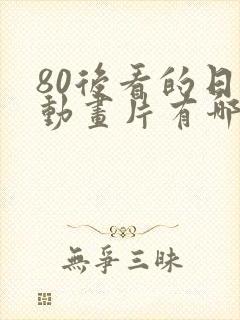 80後看的日
動畫片有哪
無爭三昧